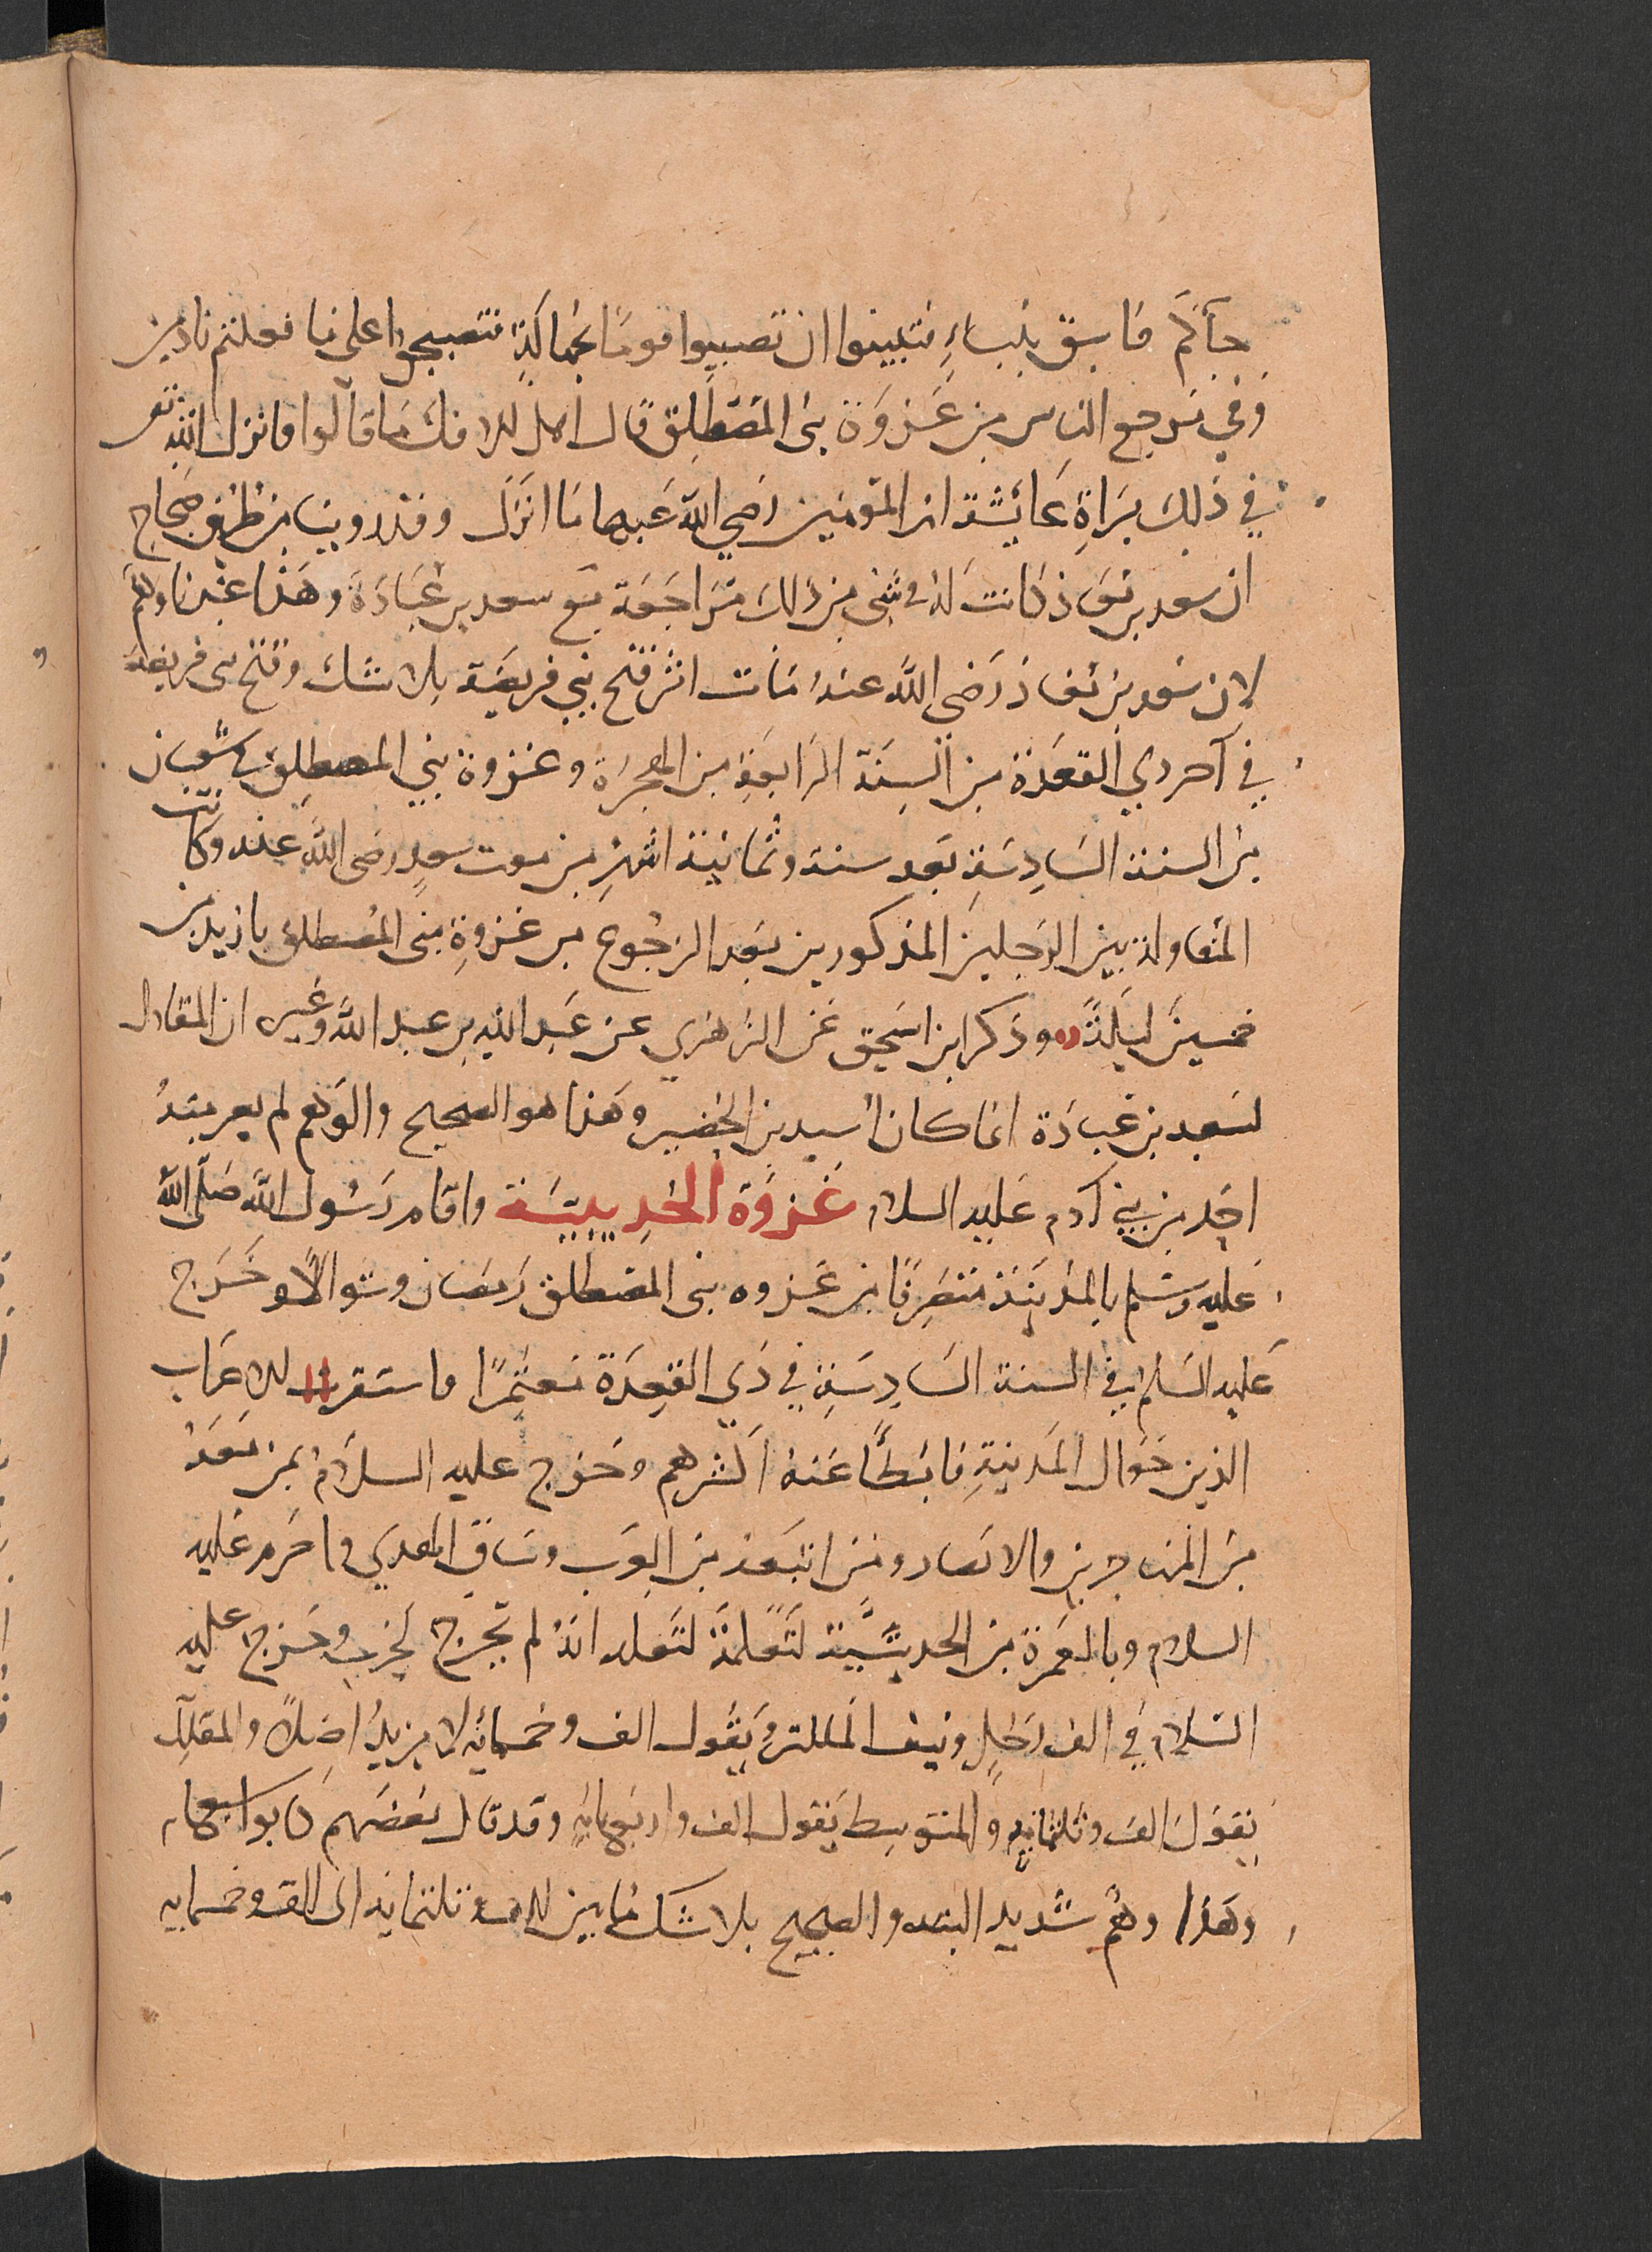 جآكم فاسق بنباءٍ فتبينوا ان تصيبوا قومًا بجهالةٍ فتصبحوا على ما فعلتم نادمين
وفي مرجع الناس من غزوة بنى المصطلق قال اهل الافك ما قالوا فانزل الله تعـ
في ذلك براةِ عايشة ام المؤمنين رضي الله عنها ما انزل وقد روينا من طرق صحاح
ان سعد بن معاذ كانت له في شي من ذلك مراجعة مع سعد بن عبادة وهذا عندنا وهم
لان سعد بن معاذ رَضي الله عنه مات اثر فتح بني قريضة بلا شك وفتح بنى قريضة
في آخر ذي القعدة من السنة الرابعة من الهجرة وغزوة بني المصطلق في شعبان
من السنة السادسة بعد سنة وثمانية اشهر من موت سعدٍ رضى الله عنه وكانت
المقاولة بين الرجلين المذكورين بعد الرجوع من غزوةِ بنى المصطلق بازيد من
خمسين ليلةً وذكر ابن اسحق عن الزهري عن عبد الله بن عبد الله وغيره ان المقاول
لسعد بن عبادة انما كان اسيد بن الحضير وهذا هو الصحيح والوهم لم يعر منه
احد من بني آدم عليه السلام غزوة الحديبية واقام رسول الله صلى الله
عليه وسلم بالمدينة منصرفا من غزوه بنى المصطلق رمضان وشوالا وخرج
عليه السلم في السنة السادسة في ذي القعدة معتمرًا واستنفر الاعراب
الذين حوال المدينةِ فابطأ عنه اكثرهم وخرج عليه السلام بمن معه
من المهاجرين والانصار ومن اتبعه من العرب وساق الهدي واحرم عليه
السلام وبالعمرة من الحديبية لتعلمة لتعلم انه لم يخرج لحرب وخرج عليه
السلام في الف رجلٍ ونيف المكثر يقول الف وخمسمائه لا مزيد اصلاً والمقلل
يقول الف وثلثمائه والمتوسط يقول الف واربعمائه وقد قال بعضهم كانوا سبعمائه
وهذا وهم شديد البعد والصحيح بلا شك ما بين الف وثلثمايه الى الف وخمسمايه